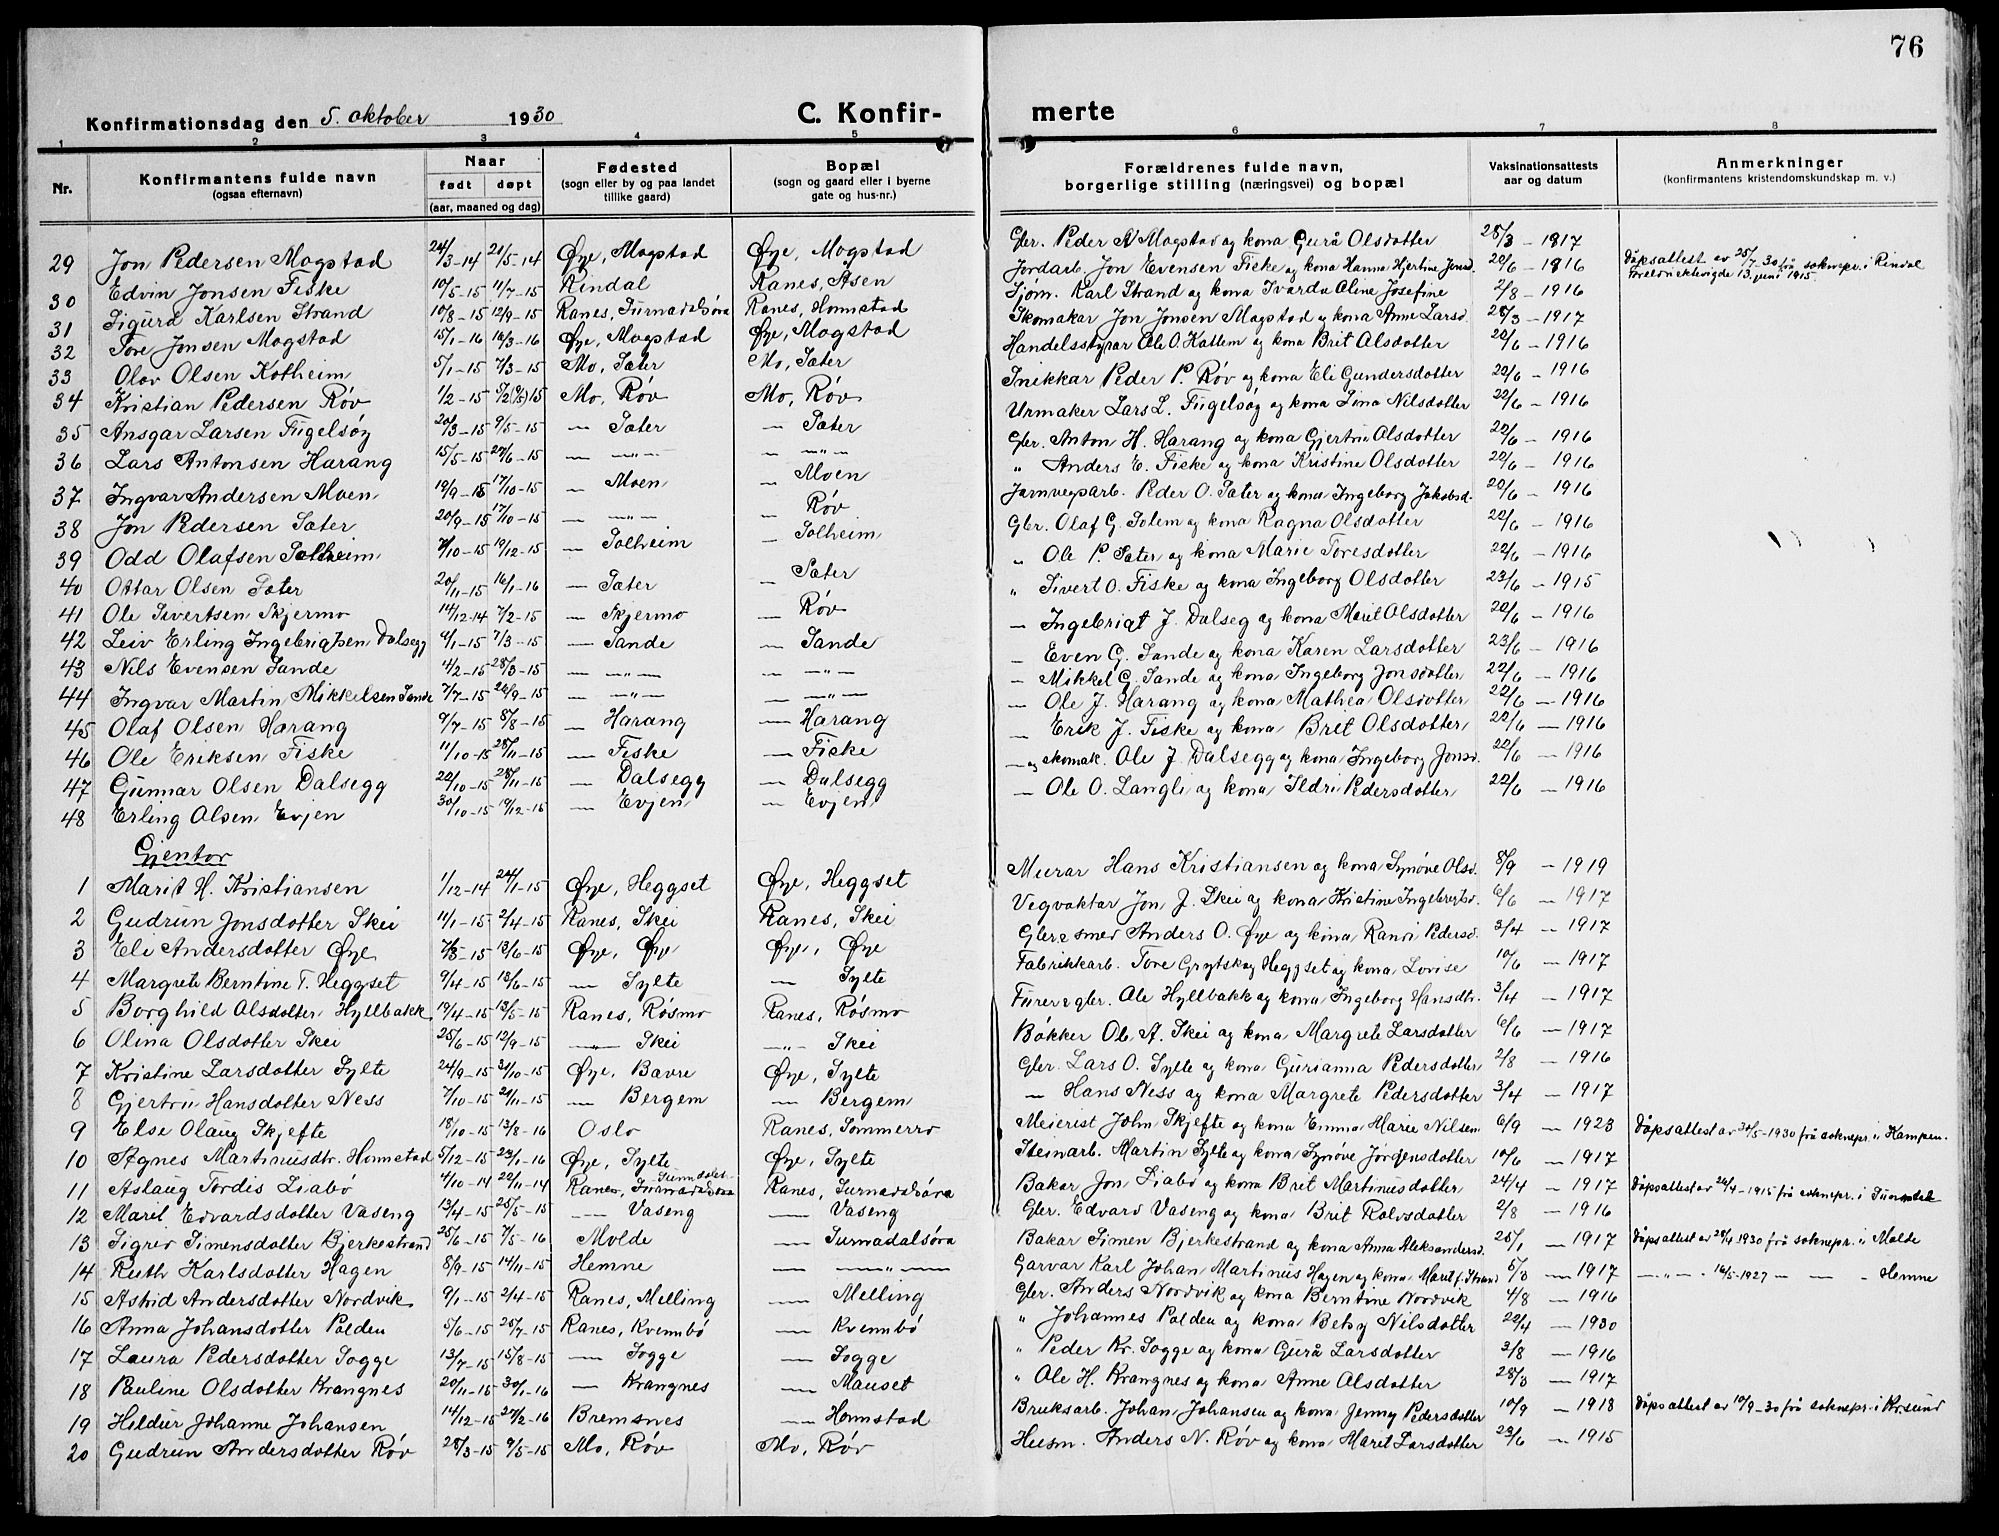 76
Konfirmationsdag den 5. oktober 1930
C. Konfir-
merte
1 2 3 4 5 6 7 8
Nr.
Konfirmantens fulde navn
(ogsaa efternavn)
Naar
født døpt
(aar, maaned og dag)
Fødested
(sogn eller by og paa landet
tillike gaard)
Bopæl
(sogn og gaard eller i byerne
gate og hus-nr.)
Forældrenes fulde navn,
borgerlige stilling (næringsvei) og bopæl
Vaksinationsattests
aar og datum
Anmerkninger
(konfirmantens kristendomskundskap m. v.)
29 Jon Pedersen Mogstad 24/3-14 21/5-14 Øye, Mogstad Øye, Mogstad Gbr. Peder N Mogstad og kona Gurå Olsdotter 28/3 - 1917
30 Edvin Jonsen Fiske 10/5-15 11/7-15 Rindal Ranes, Åsen Jordarb. Jon Evensen Fiske og kona Hanna Hjertine Jonsd. 20/6 - 1916 Dåpsattest av 25/7-30 frå soknepr. i Rindal
Foreldri ektevigde 13. juni 1915
31 Sigurd Karlsen Strand 10/8-15 12/9-15 Ranes, Surnadalsøra Ranes, Honnstad Sjøm. Karl Strand og kona Ivarda Oline Josefine 2/8 - 1916
32 Tore Jonsen Mogstad 15/1-16 16/3-16 Øye, Mogstad Øye, Mogstad Skomakar Jon Jonsen Mogstad og kona Anne Larsd. 28/3 - 1917
33 Olov Olsen Kotheim 5/1-15 7/3-15 Mo, Sæter Mo, Sæter Handelsstyrar Ole O. Kattem og kona Brit Olsdotter 20/6 - 1916
34 Kristian Pedersen Røv 1/2-15 Mo, Røv Mo, Røv Snikkar Peder P. Røv og kona Eli Gundersdotter 22/6 - 1916
35 Ansgar Larsen Fugelsøy 20/3-15 9/5-15 — Sæter — Sæter Urmaker Lars L. Fugelsøy og kona Sina Nilsdotter 22/6 - 1916
36 Lars Antonsen Harang 15/5-15 27/6-15 — —"— — —"— Gbr. Anton H. Harang og kona Gjertru Olsdotter 22/6 - 1916
37 Ingvar Andersen Moen 19/9-15 17/10-15 — Moen — Moen " Anders E. Fiske og kona Kristine Olsdotter 20/6 - 1916
38 Jon Pedersen Sæter 20/9-15 17/10-15 — —"— Røv Jarnvegsarb. Peder O. Sæter og kona Ingeborg Jakobsd. 20/6 - 1916
39 Odd Olafsen Solheim 7/10-15 19/12-15 — Solheim — Solheim Gbr. Olaf G. Solem og kona Ragna Olsdotter 22/6 - 1916
40 Ottar Olsen Sæter 20/11-15 16/1-16 — Sæter — Sæter " Ole P. Sæter og kona Marie Toresdotter 22/6 - 1916
41 Ole Sivertsen Skjermo 14/12-14 7/2-15 — Skjermo — Røv " Sivert O. Fiske og kona Ingeborg Olsdotter 23/6 - 1915
42 Leiv Erling Ingebrigtsen Dalsegg 4/1-15 7/3-15 — Sande — Sande — Ingebrigt J. Dalseg og kona Marit Olsdotter 20/6 - 1916
43 Nils Evensen Sande 4/2-15 28/3-15 — —"— — —"— — Even G. Sande og kona Karen Larsdotter 23/6 - 1916
44 Ingvar Martin Mikkelsen Sande 7/7-15 26/9-15 — —"— — —"— — Mikkel G. Sande og kona Ingeborg Jonsdotter 22/6 - 1916
45 Olaf Olsen Harang 9/7-15 8/8-15 — Harang — Harang — Ole J. Harang og kona Mathea Olsdotter 22/6 - 1916
46 Ole Eriksen Fiske 11/10-15 28/11-15 — Fiske — Fiske — Erik J. Fiske og kona Brit Olsdotter 22/6 - 1916
47 Gunnar Olsen Dalsegg 22/10-15 28/11-15 — Dalsegg — Dalsegg — og skomak. Ole J Dalsegg og kona Ingeborg Jonsd. 22/6 - 1916
48 Erling Olsen Evjen 30/10-15 19/12-15 — Evjen — Evjen — Ole O. Langli og kona Ildri Pedersdotter 22/6 - 1916
Gjentor
1 Marit H. Kristiansen 1/12-14 24/1-15 Øye, Heggset Øye, Heggset Murar Hans Kristiansen og kona Synøve Olsd. 8/9 - 1919
2 Gudrun Jonsdotter Skei 11/1-15 2/4-15 Ranes, Skei Ranes, Skei Vegvaktar Jon J. Skei og kona Kristine Ingebrigtsd. 6/6 - 1917
3 Eli Andersdotter Øye 7/3-15 13/6-15 Øye, Øye Øye, Øye Gbr & smed Anders O. Øye og kona Randi Pedersd. 3/4 - 1917
4 Margrete Berntine T. Heggset 9/4-15 13/6-15 — Sylte — Sylte Fabrikkarb. Tore Grytskog Heggset og kona Lovise 10/6 - 1917
5 Borghild Olsdotter Hyllbakk 19/4-15 13/5-15 Ranes, Røsmo Ranes, Røsmo Furer & gbr. Ole Hyllbakk og kona Ingeborg Hansdtr. 3/4 - 1917
6 Olina Olsdotter Skei 25/6-15 12/9-15 —"— Skei —"— Skei Bøkker Ole A. Skei og kona Margrete Larsdotter 6/6 - 1917
7 Kristine Larsdotter Sylte 24/9-15 31/10-15 Øye, Bavre Øye, Sylte Gbr. Lars O. Sylte og kona Gurianna Pedersdotter 2/8 - 1916
8 Gjertru Hansdotter Ness 7/10-15 21/11-15 — Bergem — Bergem — Hans Ness og kona Margrete Pedersdotter 3/4 - 1917
9 Else Olaug Skjefte 18/10-15 13/8-16 Oslo Ranes, Sommerro Meierist John Skjefte og kona Emma Marie Nilsen 6/9 - 1923 Dåpsattest av 24/5-1930 frå soknepr. i Kampen.
10 Agnes Martinusdtr. Honnstad 5/12-15 23/1-16 Øye, Sylte Øye, Sylte Steinarb. Martin Sylte og kona Synøve Jørgensdotter 10/6 - 1917
11 Aslaug Tordis Liabø 4/10-14 22/11-14 Ranes, Surnadalsøra Ranes, Surnadalsøra Bakar Jon Liabø og kona Brit Martinusdotter 24/4 - 1917 Dåpsattest av 24/4-1915 frå soknepr. i
12 Marit Edvardsdotter Vaseng 13/4-15 25/5-15 — Vaseng — Vaseng Gbr. Edvard Vaseng og kona Brit Rolvsdotter 2/8 - 1916
13 Sigrid Simensdotter Bjerkestrand 25/6-15 7/5-16 Molde — Surnadalsøra Bakar Simen Bjerkestrand og kona Anna Aleksandersd. 25/1 - 1917 Dåpsattest av 28/4 1930 frå soknepr. i Molde
14 Ruth Karlsdotter Hagen 8/9-15 14/11-15 Hemne — —"— Garvar Karl Johan Martinus Hagen og kona Marit f. Strand 5/3 - 1917 —"— - 14/5-1927 — — - Hemne
15 Astrid Andersdotter Nordvik 9/1-15 2/4-15 Ranes, Melling — Melling Gbr. Anders Nordvik og kona Berntine Nordvik 4/8 - 1916
16 Anna Johansdotter Polden 5/6-15 25/7-15 Ranes, Kvennbø — Kvennbø " Johannes Polden og kona Betsy Nilsdotter 22/4 - 1930
17 Laura Pedersdotter Sogge 13/7-15 15/8-15 — Sogge — Sogge " Peder Kr. Sogge og kona Gurå Larsdotter 3/8 - 1916
18 Pauline Olsdotter Krangnes 20/11-15 30/1-16 — Krangnes — Mauset " Ole H. Krangnes og kona Anne Olsdotter 28/3 - 1917
19 Hildur Johanne Johansen 14/12-15 27/2-16 Bremsnes — Honnstad Bruksarb. Johan Johansen og kona Jenny Pedersdotter 10/9 - 1918 Dåpsattest av 19/9-30 frå soknepr. i Kr.sund
20 Gudrun Andersdotter Røv 28/3-15 9/5-15 Mo, Røv Mo, Røv Husm. Anders N. Røv og kona Marit Larsdotter 23/6 - 1915